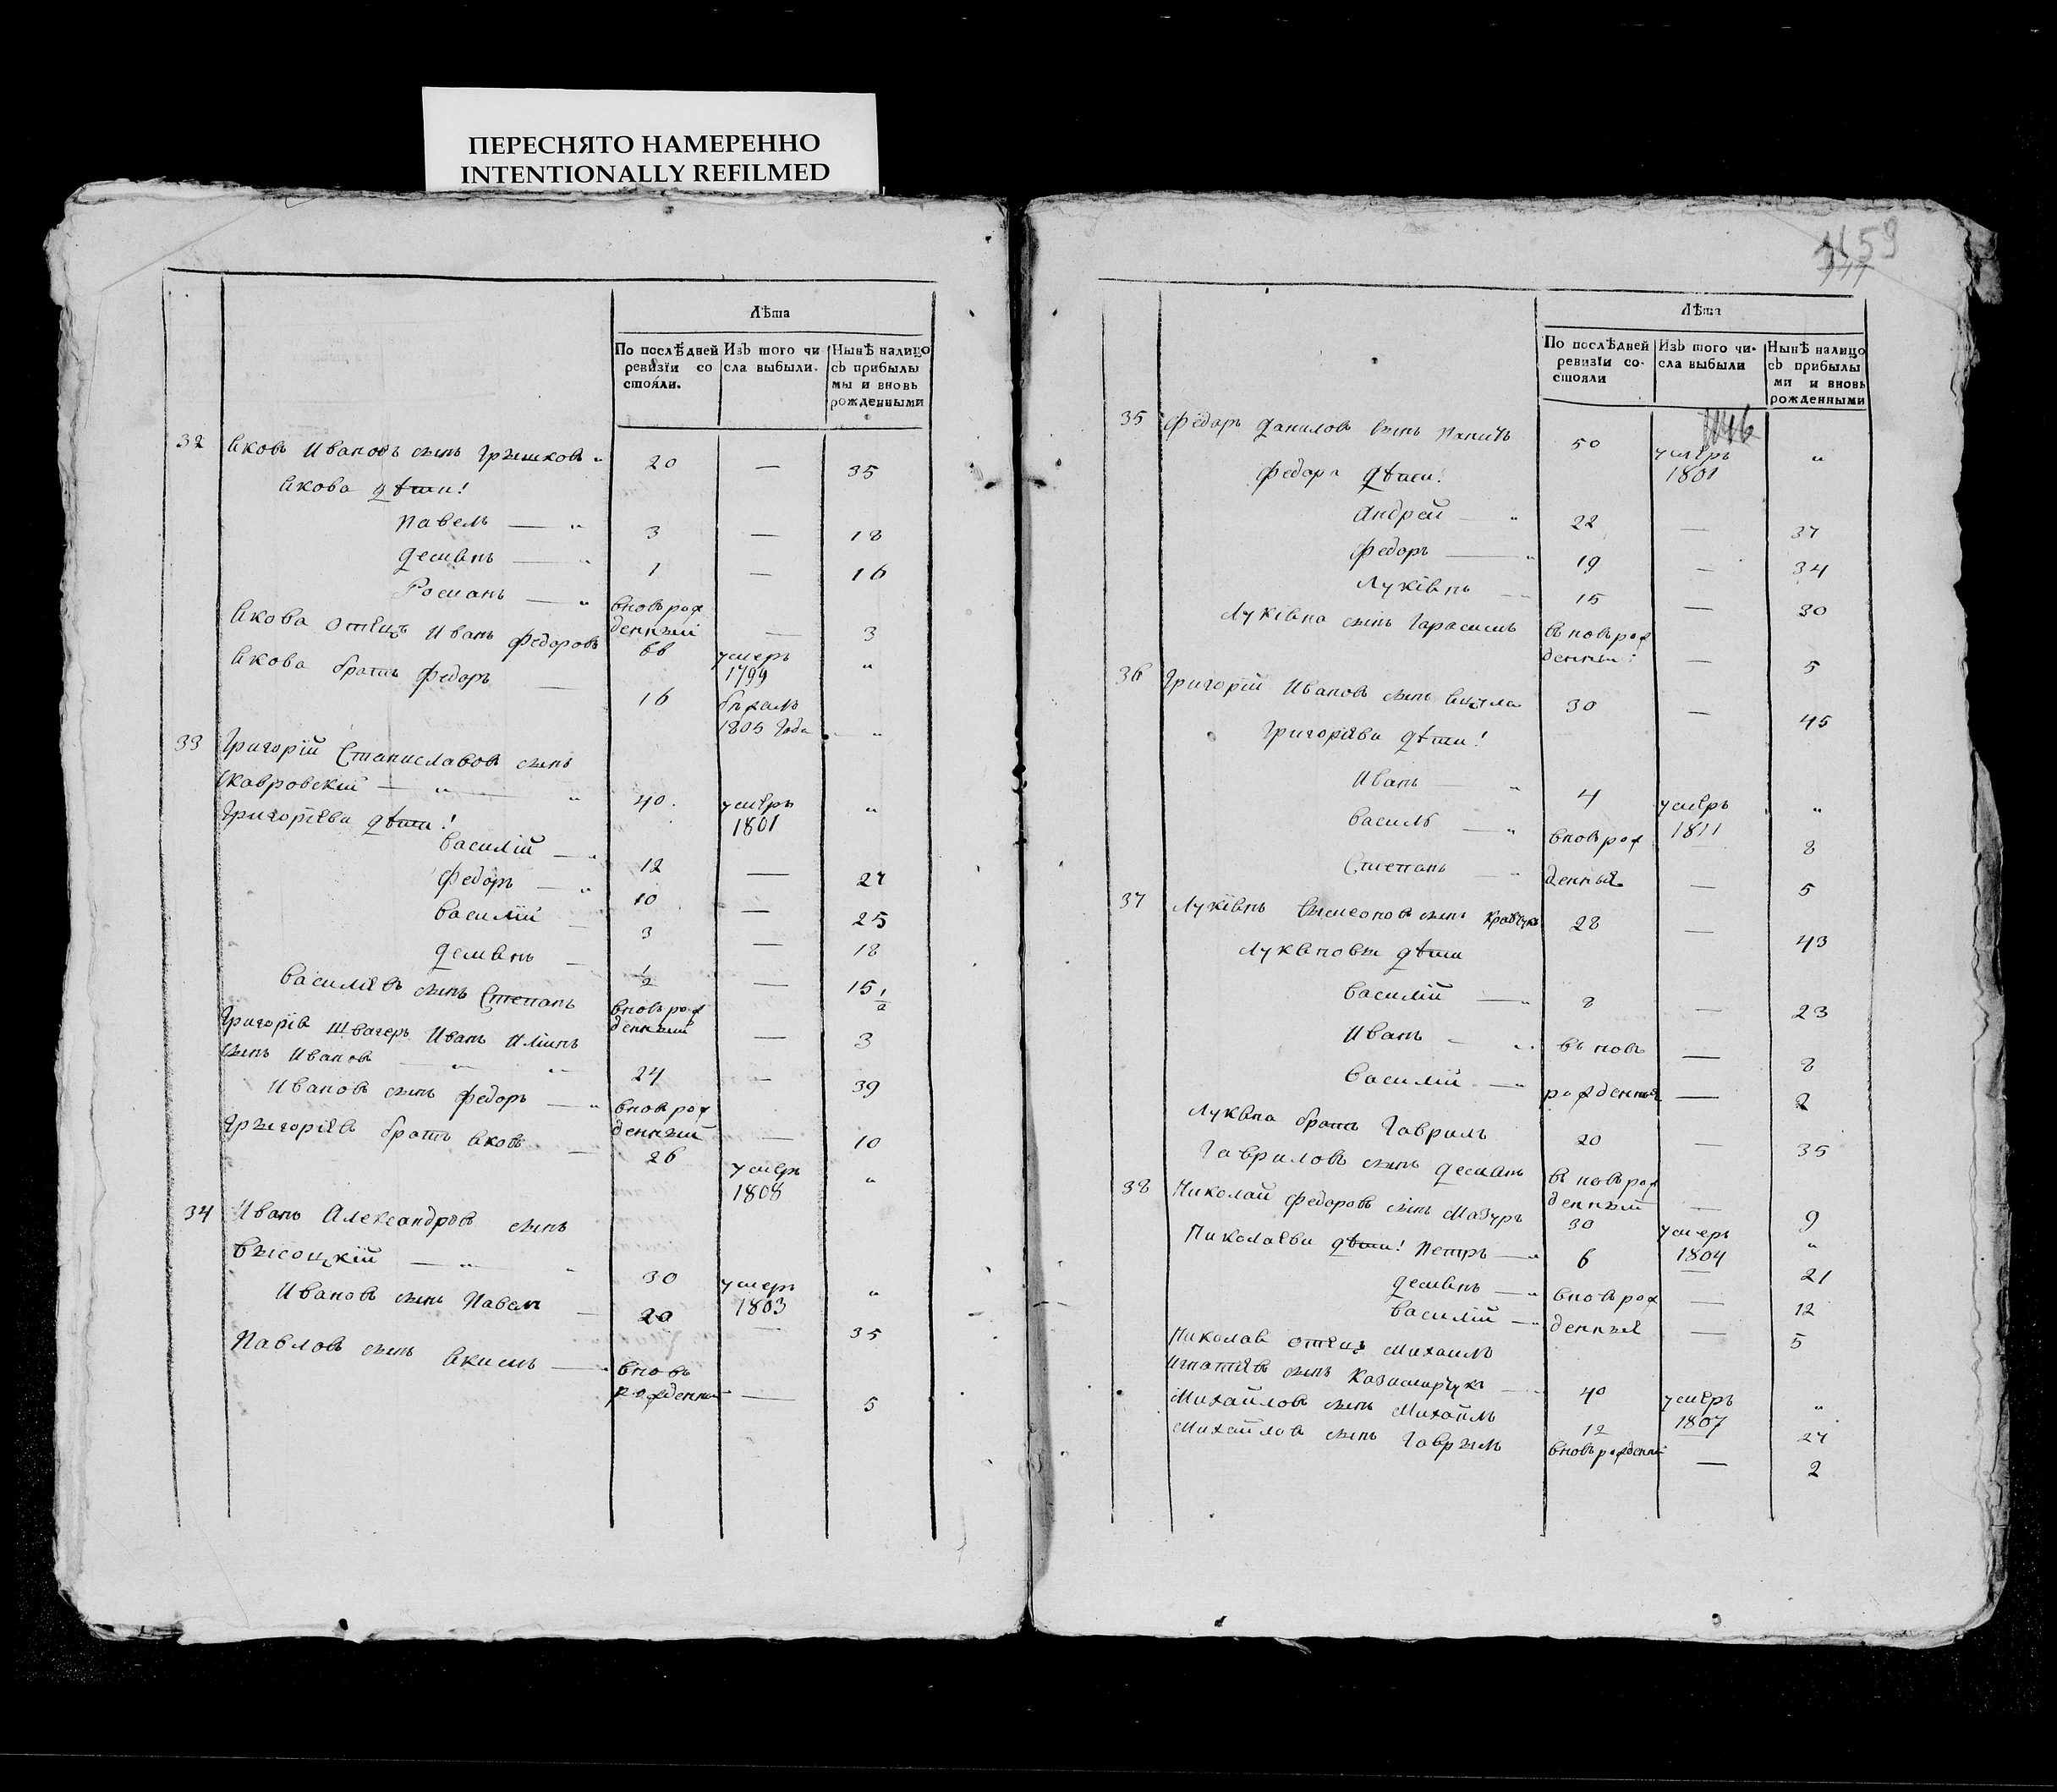 ПЕРЕСНЯТО НАМЕРЕННО
INTENTIONALLY REFILMED
Лѣта
По послѣдней ревизїи со стояли.
Изъ того чи сла выбыли.
Нынѣ налицо съ прибылы ми и вновь рожденными
32 Яковъ Ивановъ сынъ Грышковъ 20 — 35
Якова дѣти!
Павелъ — " 3 — 18
Демянъ — " 1 — 16
Романъ — " вновьрож
денный — 3
Якова отецъ Иванъ Федоровъ 66 умеръ 1799 "
Якова братъ Федоръ — 16 бѣжалъ
1805 Года "
33 Григорій Станиславовъ сынъ
Скавровскій — " — " 40. умеръ 1801 "
Григоріева дѣти!
Василій — " 12 — 27
Федоръ — " 10 — 25
Василій — 3 — 18
Демянъ — 1/2 — 15 1/2
Василіевъ сынъ Степанъ вновьрож
денный — 3
Григорія швагеръ Иванъ Илїинъ
сынъ Ивановъ " " 24 — 39
Ивановъ сынъ Федоръ — " вновьрож
денный — 10
Грыгоріевъ братъ Яковъ — 26 умеръ 1808 "
34 Иванъ Александровъ сынъ
Высоцкїй — " " 30 умеръ 1803 "
Ивановъ сынъ Павелъ — 20 — 35
Павловъ сынъ Якимъ — вновь
рожденны — 5
1159
Лѣта
По послѣдней ревизїи со- стояли
Изъ того чи- сла выбыли
Нынѣ налицо съ прибылы ми и вновь рожденными
35 Федоръ Данилов сынъ 50 умеръ 1801 "
Федора дѣти!
Андрей — " 22 — 37
Федоръ — " 19 — 34
Лукїянъ — 15 — 30
Лукїяна сынъ Гарасимъ въновьрож
денны: — 5
36 Григорїй Ивановъ сынъ 30 — 45
Григорїева дѣти!
Иванъ — " 4 умеръ 1811 "
Василь — " вновьрож 8
Степанъ — " денныя — 5
37 Лукїянъ сынъ Кравчукъ 28 — 43
Лукяновы дѣти
Василїй — " 8 — 23
Иванъ — " въновь — 8
Василїй — " рожденныя — 2
Лукяна братъ Гаврилъ 20 — 35
Гавриловъ сынъ Демянъ въновьрож
денный — 9
38 Николай Федоровъ сынъ Мазуръ 30 умеръ 1804 "
Николаева дѣти! Петръ — " 6 — 21
Демянъ — " вновьрож — 12
Василїй — " денныя — 5
Николая отецъ Михаилъ
Игнатїевъ сынъ Казимирчукъ — 40 умеръ 1807 "
Михайловъ сынъ Михайлъ 12 — 27
Михайловъ сынъ Гаврылъ вновьрожденны — 2